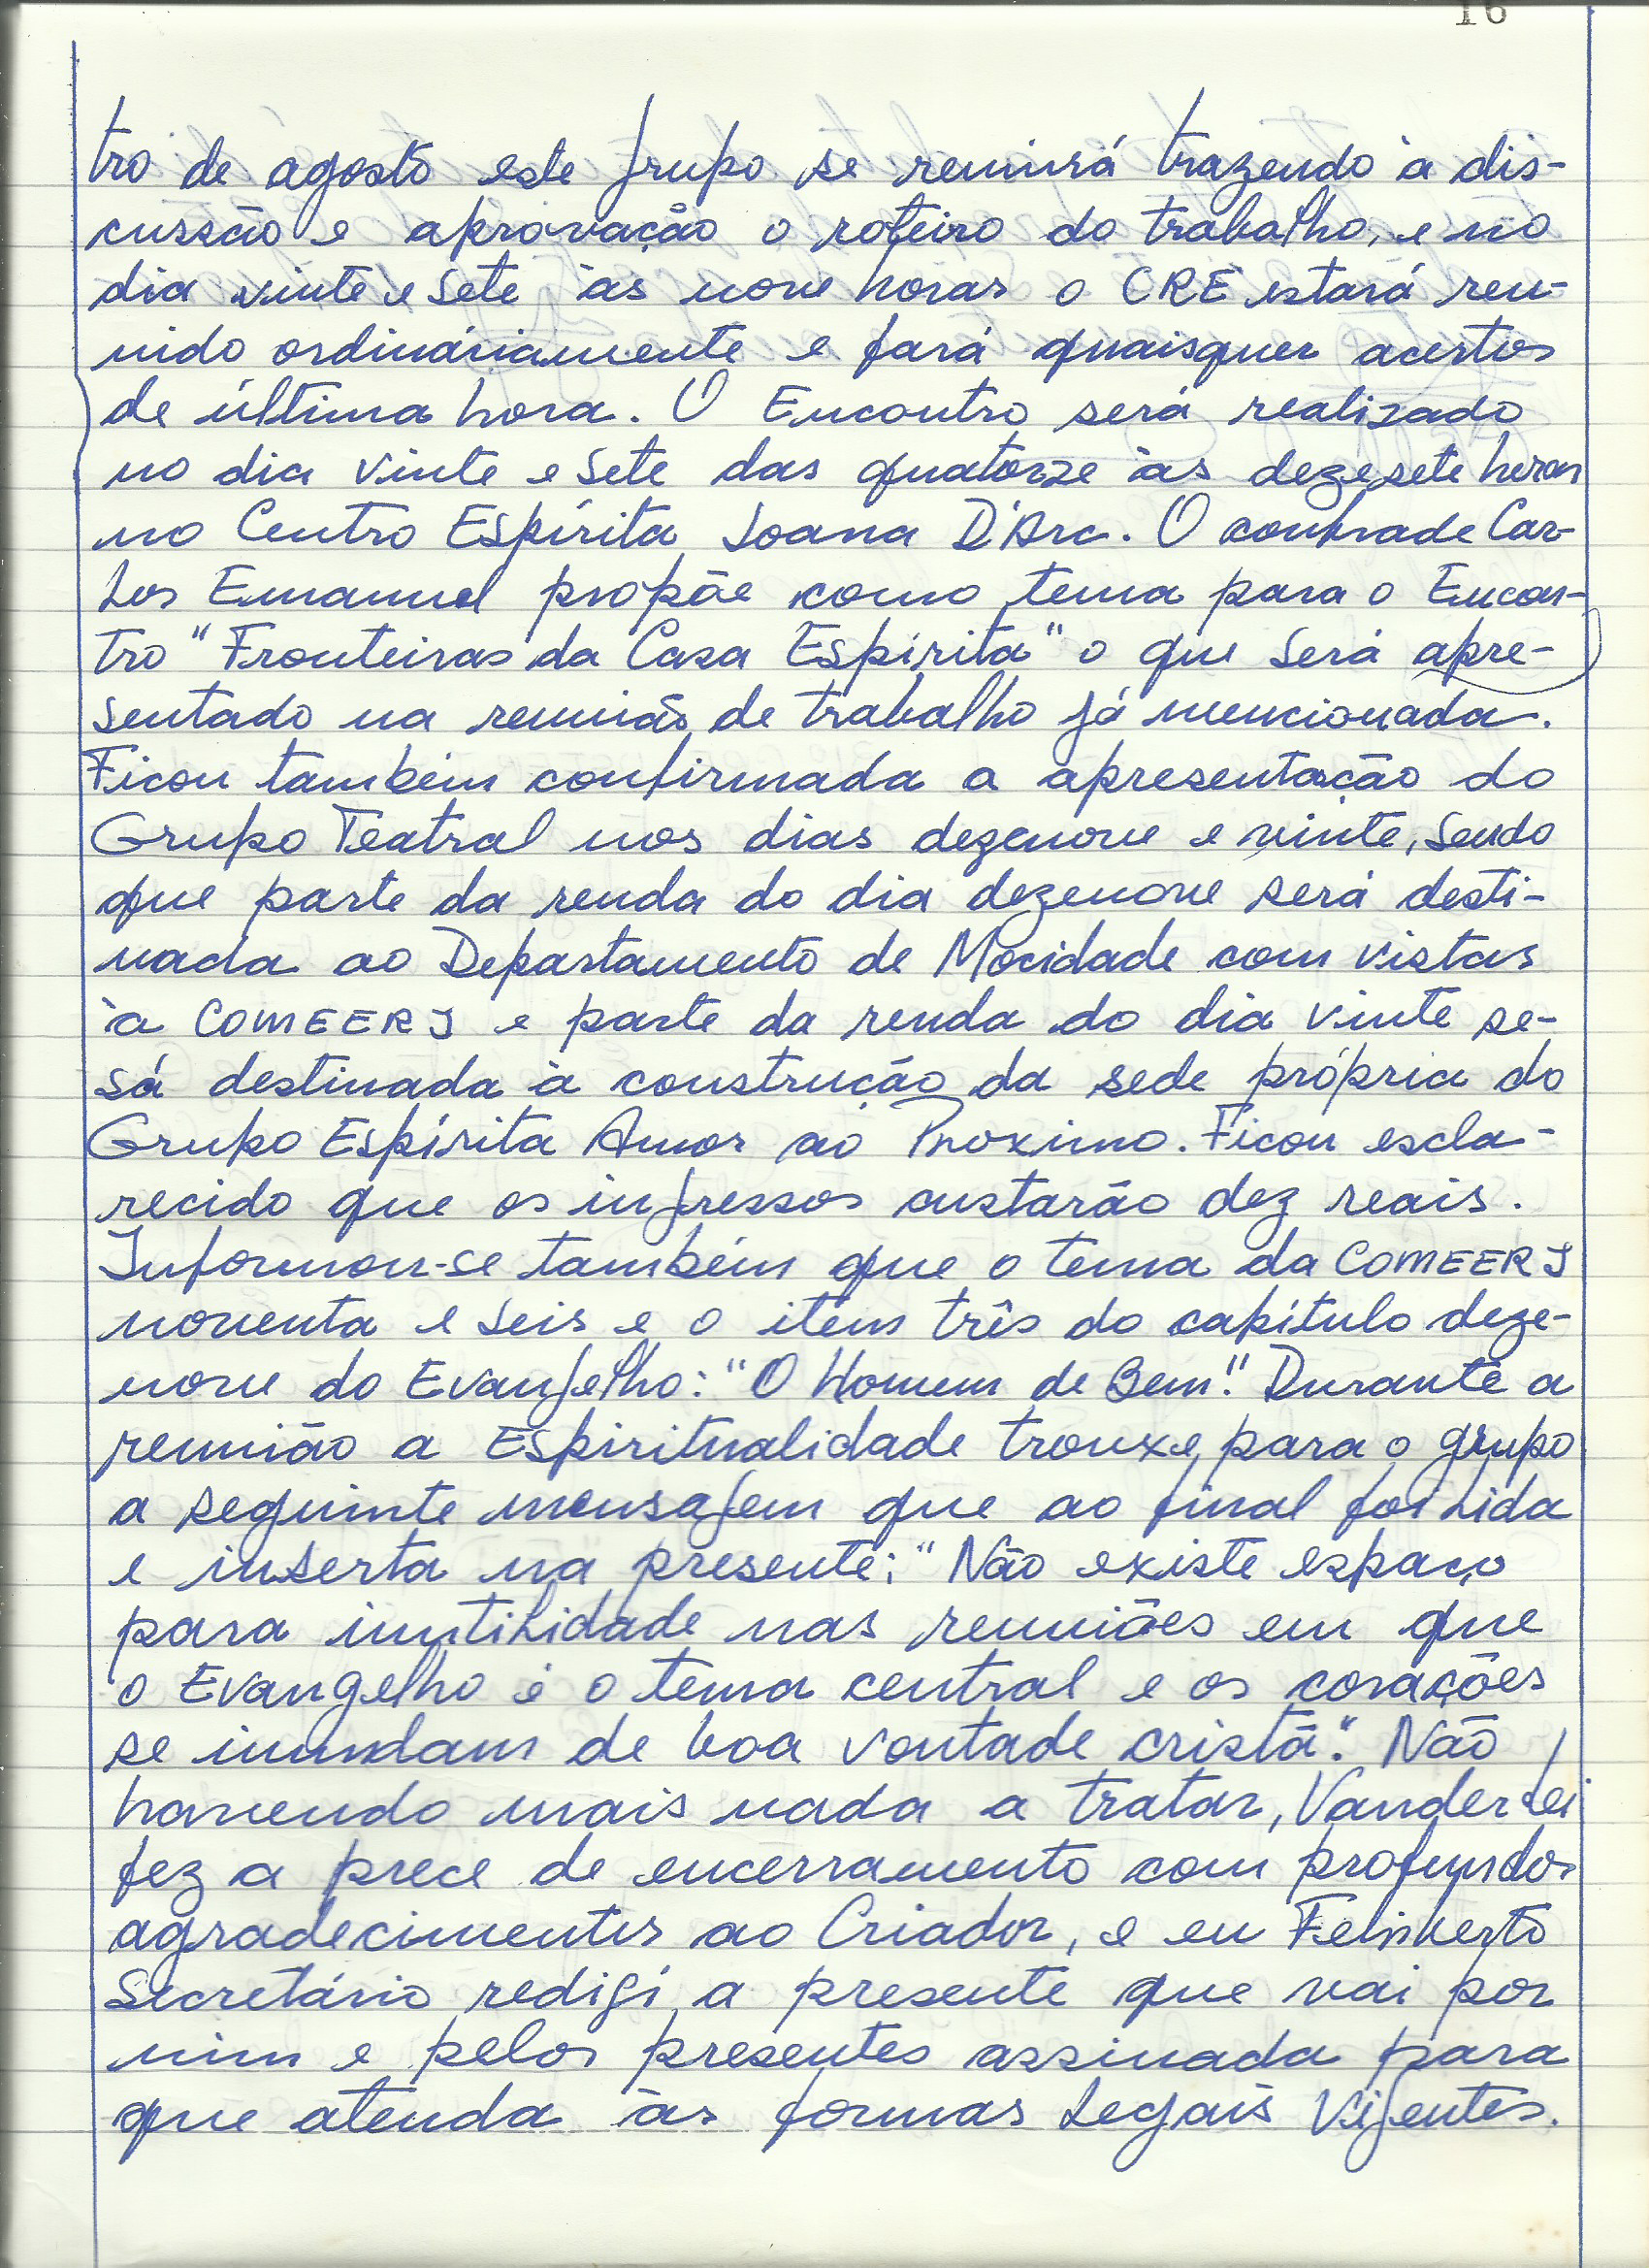 16
tro de agosto este grupo se reunirá trazendo à dis-
cussão e aprovação o roteiro do trabalho, e no
dia vinte e sete às nove horas o CRE estará reu-
nido ordináriamente e fará quaisquer acertos
de última hora. O Encontro será realizado
no dia vinte e sete das quatorze às dezesete horas
no Centro Espírita Joana D'Arc. O confrade Car-
los Emanuel propõe como tema para o Encon-
tro "Fronteiras da Casa Espírita" o que será apre-
sentado na reunião de trabalho já mencionada.
Ficou também confirmada a apresentação do
Grupo Teatral nos dias dezenove e vinte, sendo
que parte da renda do dia dezenove será desti-
nada ao Departamento de Mocidade com vistas
à COMEERJ e parte da renda do dia vinte se-
rá destinada à construção da sede própria do
Grupo Espírita Amor ao Proximo. Ficou escla-
recido que os ingressos custarão dez reais.
Informou-se também que o tema da COMEERJ
noventa e seis e o item três do capítulo deze-
nove do Evangelho: "O Homem de Bem". Durante a
reunião a Espiritualidade trouxe para o grupo
a seguinte mensagem que ao final foi lida
e inserta na presente: "Não existe espaço
para inutilidade nas reuniões em que
o Evangelho é o tema central e os corações
se inundam de boa vontade cristã". Não
havendo mais nada a tratar, Vanderlei
fez a prece de encerramento com profundos
agradecimentos ao Criador, e eu Felisberto
Secretário redigí a presente que vai por
mim e pelos presentes assinada para
que atenda às formas legais vigentes.